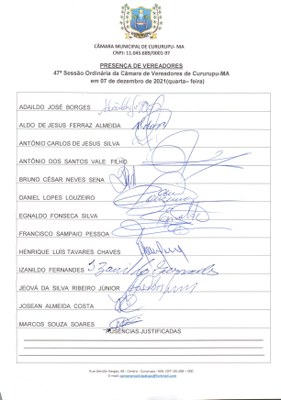 CÂMARA MUNICIPAL DE CURURUPU- MA
CNPJ: 11.045.689/0001-97
PRESENÇA DE VEREADORES
47ª Sessão Ordinária da Câmara de Vereadores de Cururupu-MA
em 07 de dezembro de 2021(quarta– feira)
ADAILDO JOSÉ BORGES
ALDO DE JESUS FERRAZ ALMEIDA
ANTÔNIO CARLOS DE JESUS SILVA
ANTÔNIO DOS SANTOS VALE FILHO
BRUNO CÉSAR NEVES SENA
DANIEL LOPES LOUZEIRO
EGNALDO FONSECA SILVA
FRANCISCO SAMPAIO PESSOA
HENRIQUE LUIS TAVARES CHAVES
IZANILDO FERNANDES
JEOVÁ DA SILVA RIBEIRO JÚNIOR
JOSEAN ALMEIDA COSTA
MARCOS SOUZA SOARES
AUSÊNCIAS JUSTIFICADAS